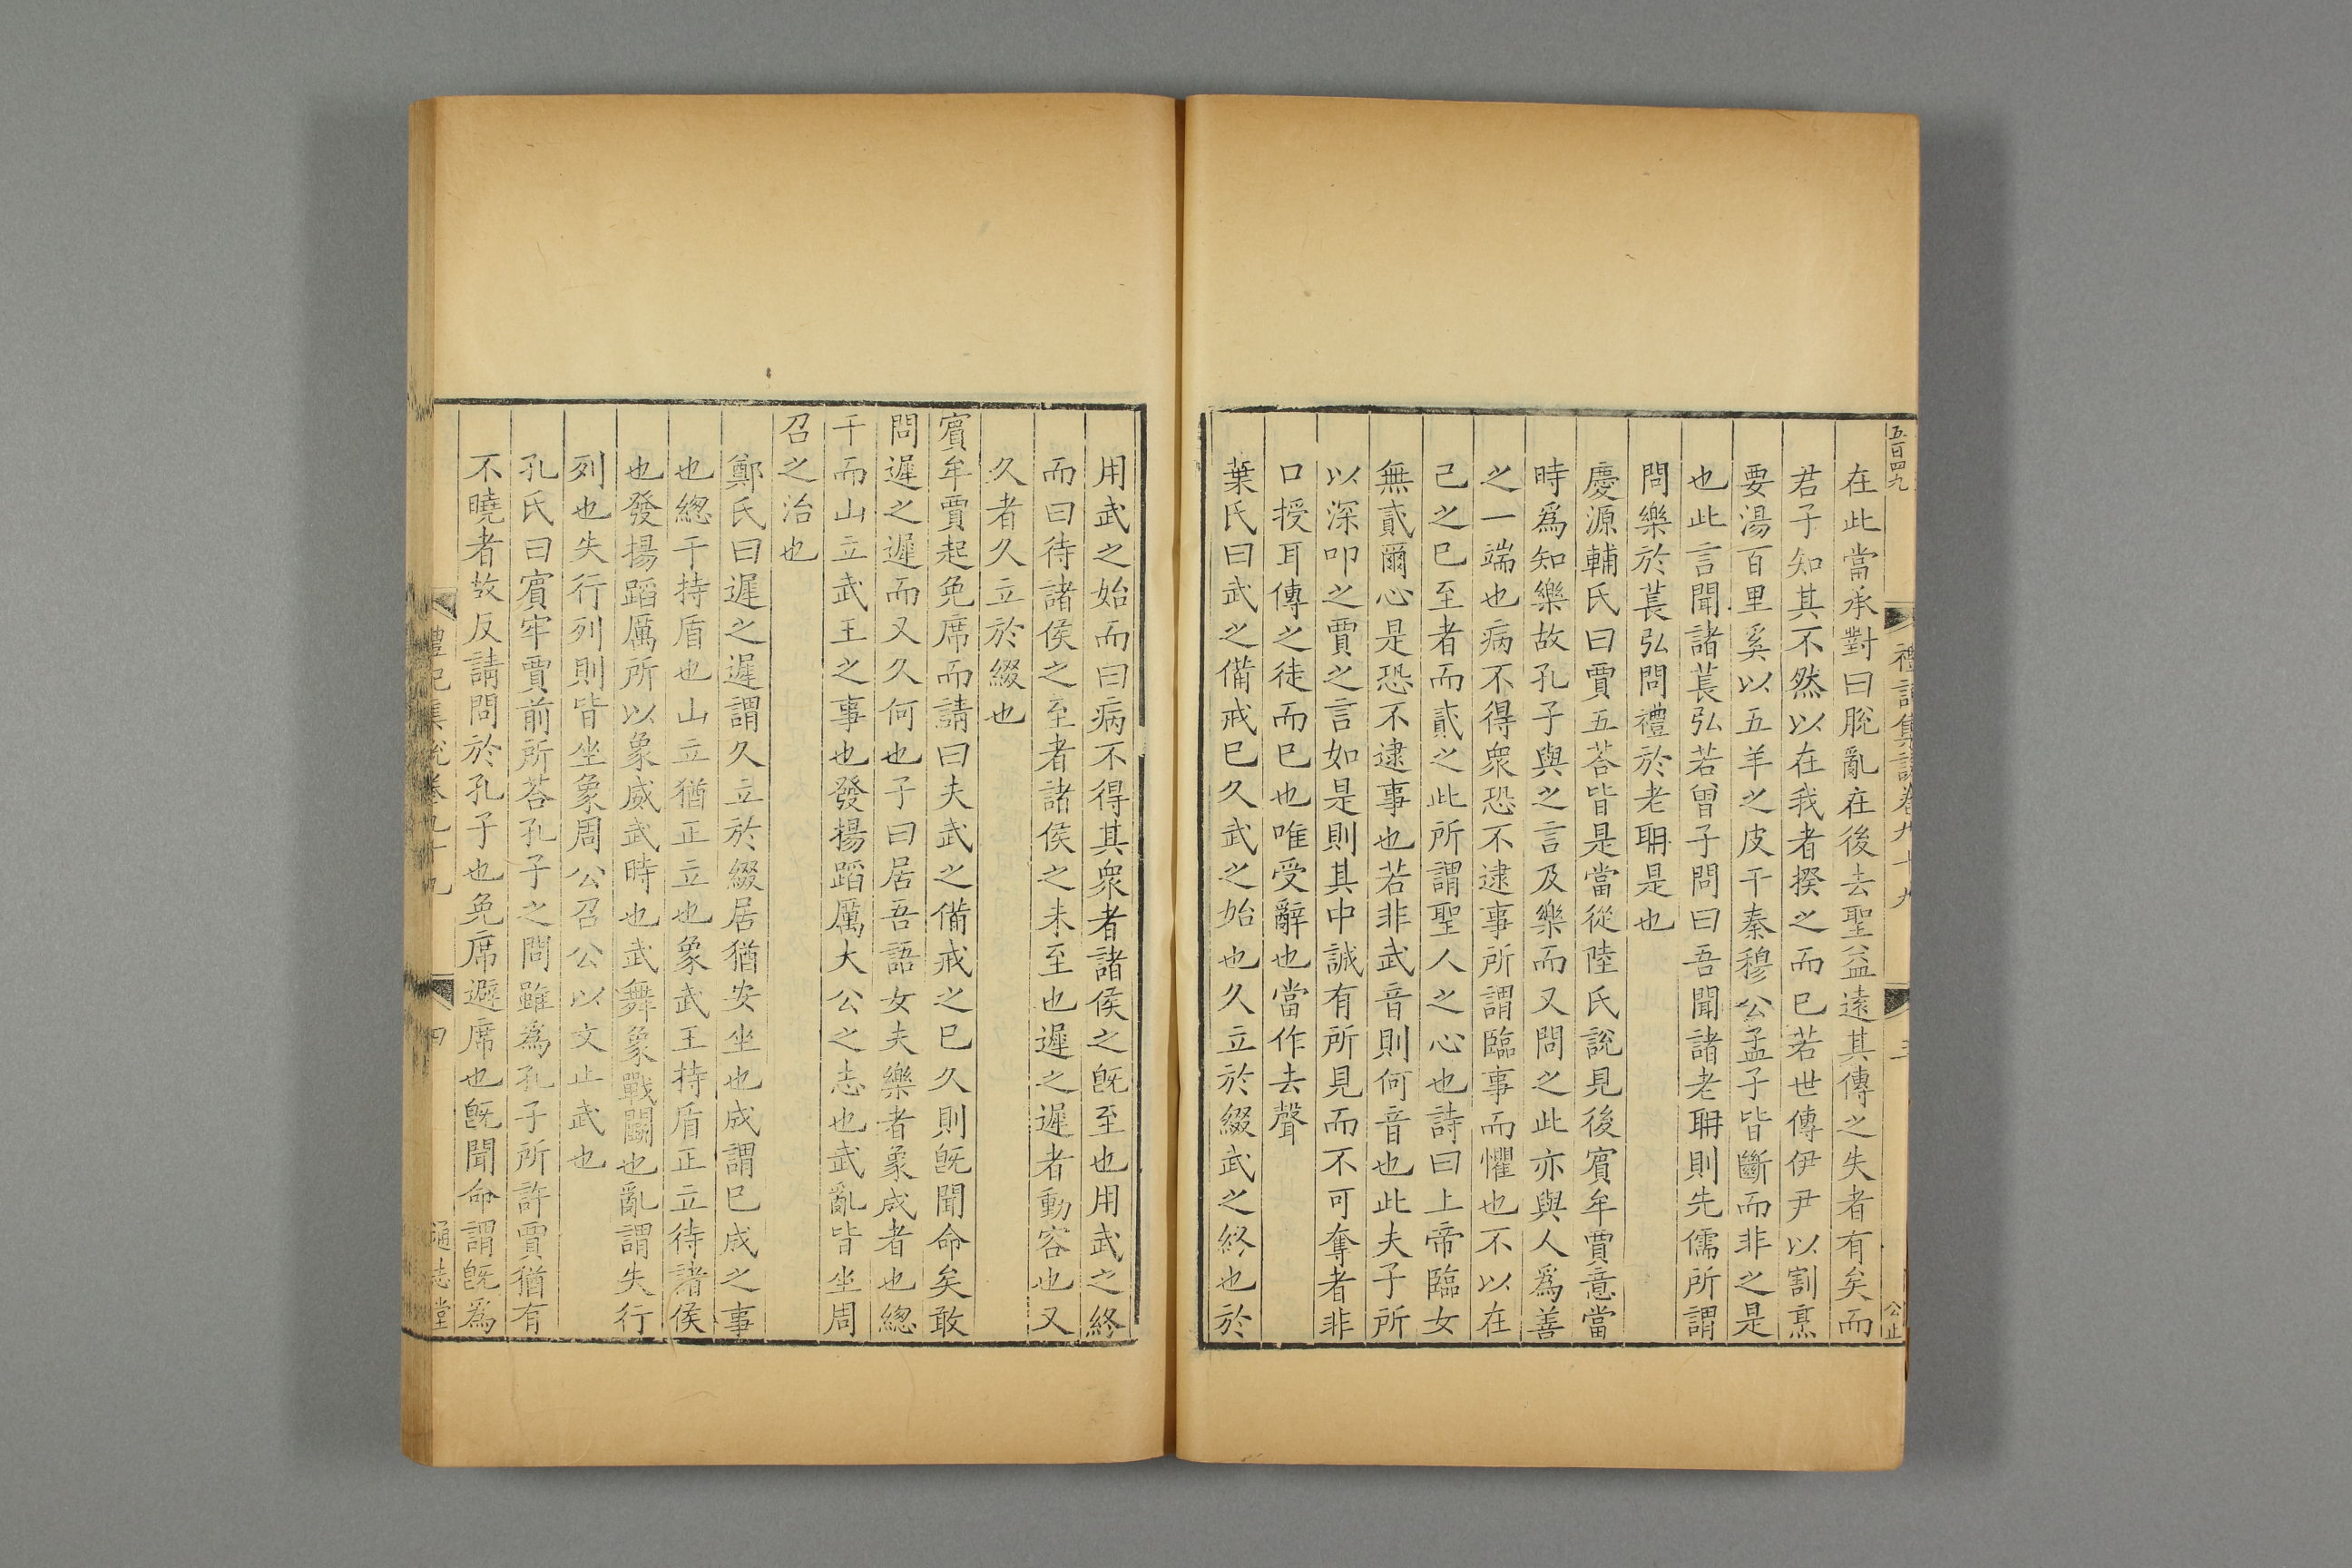 五百四九
禮記集說卷九十九
三
公止
在此當承對曰脫亂在後去聖益遠其傳之失者有矣而
君子知其不然以在我者揆之而已若世傳伊尹以割烹
要湯百里奚以五羊之皮干秦穆公孟子皆斷而非之是
也此言聞諸萇弘若曾子問曰吾聞諸老聃則先儒所謂
問樂於萇弘問禮於老聃是也
慶源輔氏曰賈五荅皆是當從陸氏說見後賓牟賈意當
時爲知樂故孔子與之言及樂而又問之此亦與人爲善
之一端也病不得衆恐不逮事所謂臨事而懼也不以在
己之已至者而貳之此所謂聖人之心也詩曰上帝臨女
無貳爾心是恐不逮事也若非武音則何音也此夫子所
以深叩之賈之言如是則其中誠有所見而不可奪者非
口授耳傳之徒而已也唯受辭也當作去聲
葉氏曰武之備戒已久武之始也久立於綴武之終也於
用武之始而曰病不得其衆者諸侯之旣至也用武之終
而曰待諸侯之至者諸侯之未至也遲之遲者動容也又
久者久立於綴也
賓牟賈起免席而請曰夫武之備戒之已久則旣聞命矣敢
問遲之遲而又久何也子曰居吾語女夫樂者象成者也緫
干而山立武王之事也發揚蹈厲大公之志也武亂皆坐周
召之治也
鄭氏曰遲之遲謂久立於綴居猶安坐也成謂已成之事
也緫干持盾也山立猶正立也象武王持盾正立待諸侯
也發揚蹈厲所以象威武時也武舞象戰鬭也亂謂失行
列也失行列則皆坐象周公召公以文止武也
孔氏曰賓牢賈前所荅孔子之問雖爲孔子所許賈猶有
不曉者故反請問於孔子也免席避席也旣聞命謂旣爲
禮記集說卷九十九
四
通志堂